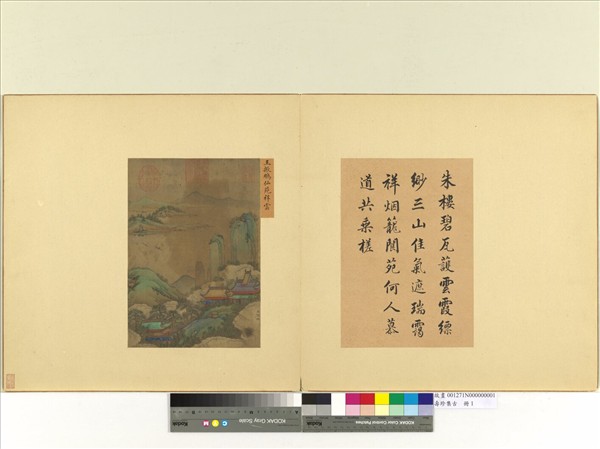 朱樓碧瓦護雲霞縹
緲三山佳氣遮瑞靄
祥烟籠閬苑何人慕
道共乘槎
王振鵬仙苑祥雲
故畫 001271N000000001
集古 冊 1
Kodak Gray Scale
C Y M
KODAK Color Control Patches